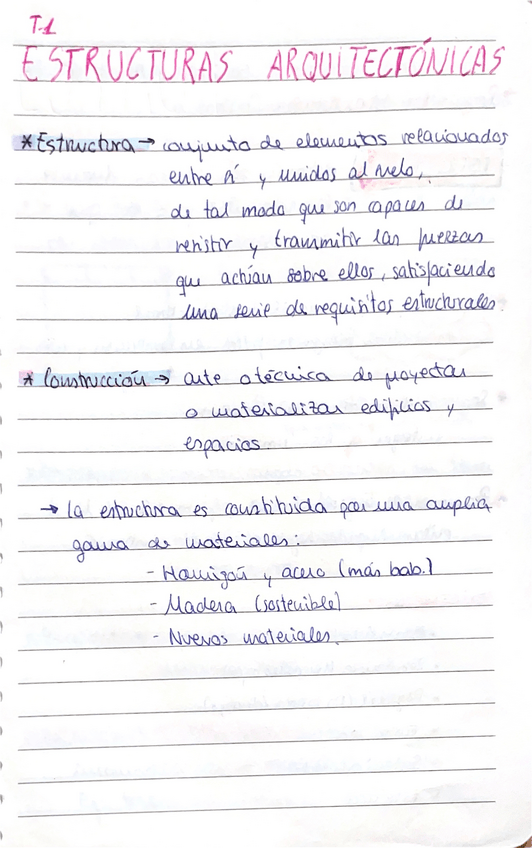 T.1
ESTRUCTURAS ARQUITECTÓNICAS
* Estructura → conjunto de elementos relacionados
entre sí y unidos al suelo,
de tal modo que son capaces de
resistir y transmitir las fuerzas
que actúan sobre ellos, satisfaciendo
una serie de requisitos estructurales.
* Construcción → arte o técnica de proyectar
o materializar edificios y
espacios
→ la estructura es constituida por una amplia
gama de materiales:
- Hormigón y acero (más hab.)
- Madera (sostenible)
- Nuevos materiales.